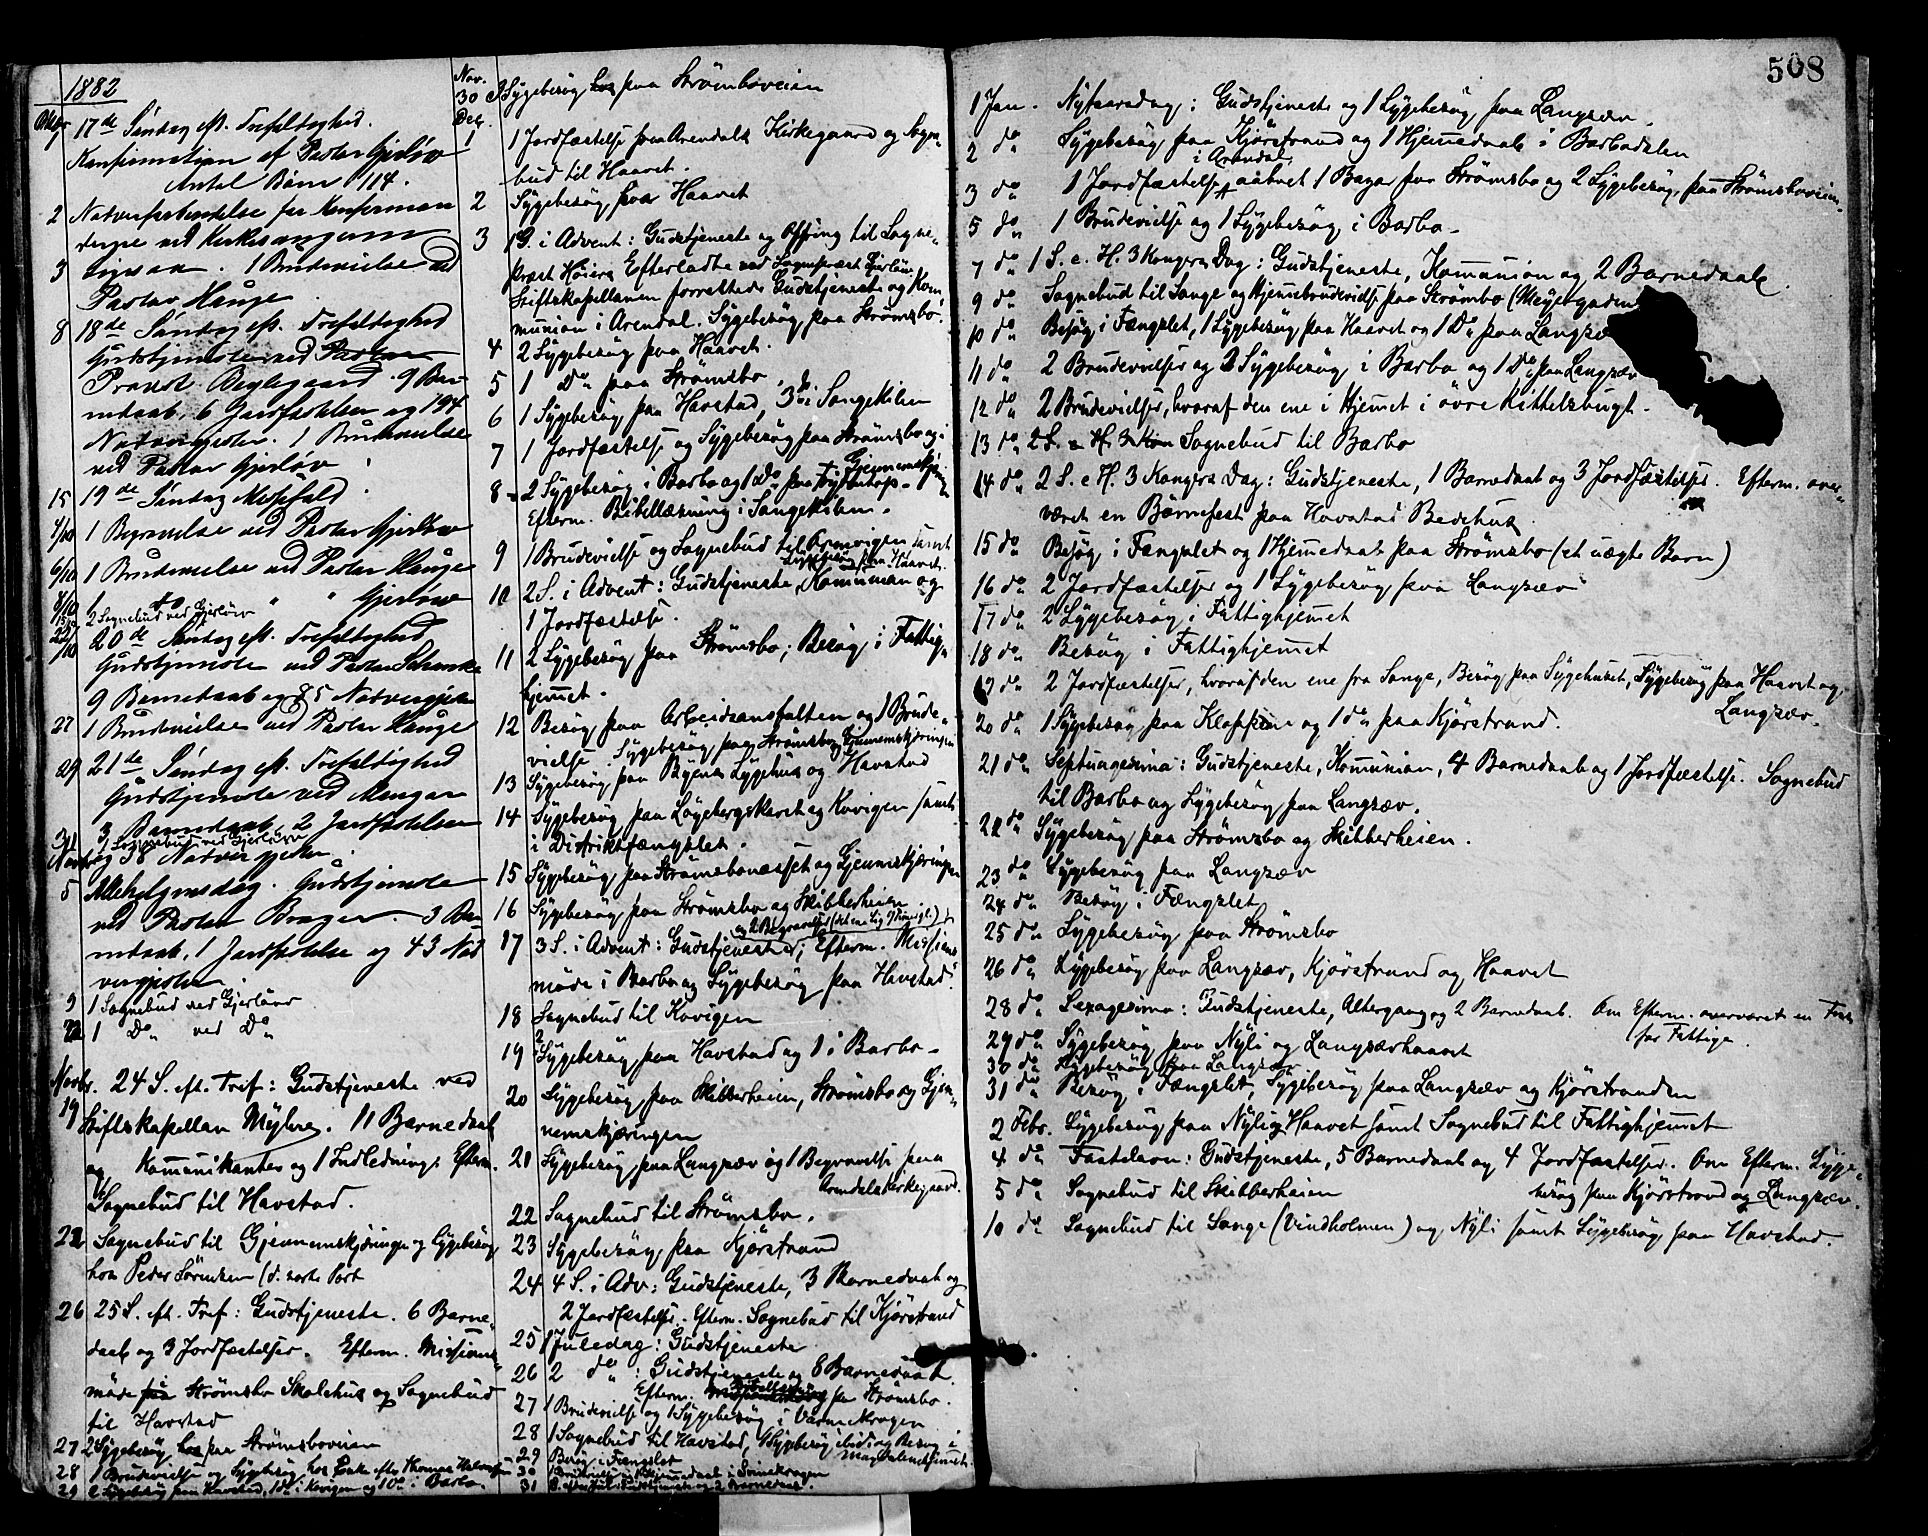 1882
Oktbr 17de Søndag eft. Trefoldighed.
Konfirmation af Pastor Gjerløw
Antal Børn 114.
2 Nadverforberedelse for Konfirman
derne ved Kirkesangeren
3 Ligesaa. 1 Brudevielse ved
Pastor Hauge
8 18de Søndag eft. Trefoldighed
Gudstjeneste ved Pastor
Provst Bugegaard. 9 Bar
nedaab, 6 Jordfæstelser og 194
Nadvergjester. 1 Brudevielse
ved Pastor Gjerløv
15 19de Søndag Messefald
4/10 1 Begravelse ved Pastor Gjerløw
6/10 1 Brudevielse ved Pastor Hauge
8/10 1 do " " Gjerløw
15/10 2 Sognebud ved Gjerløw
22/10 20de Søndag eft. Trefoldighed
Gudstjeneste ved Pastor
9 Barnedaab og 85 Nadvergjester
27 1 Brudevielse ved Pastor Hauge
29 21de Søndag eft. Trefoldighed
Gudstjeneste ved
3 Barnedaab, 2 Jordfæstelser
31 1 Sognebud ved Gjerløw
og 38 Nadvergjester.
Novbr
5 Allehelgensdag. Gudstjeneste
ved Pastor Brager. 3 Bar
nedaab, 1 Jordfæstelse og 43 Nad
vergjester
9 1 Sognebud ved Gjerløw
12 1 Do ved Do
Novbr. 24 S. eft. Tref: Gudstjeneste ved
19 Stiftskapellan Myhre. 11 Barnedaab
og Kommunikanter og 1 Indledning. Efterm.
Sognebud til Havstad.
22 Sognebud til Gjennemskjæringen og Sygebesøg
hos Peder Sørensen (d. sorte Port
26 25 S. eft. Tref: Gudstjeneste. 6 Barne-
daab og 3 Jordfæstelser. Efterm. Missions-
møde paa Strømsbo Skolehus og Sognebud
til Havstad
27 2 Sygebesøg hos paa Strømsboveien
28 1 Brudevielse og Sygebesøg hos Enke efter Thomas Halvorsen
29 2 Sygebesøg paa Havstad, 1 Do i Kovigen og 1 Do i Barbo.
Nov.
30 3 Sygebesøg hos paa Strømsboveien
Dec.
1 1 Jordfæstelse paa Arendals Kirkegaard og Sogne-
bud til Haavet.
2 Sygebesøg paa Haavet
3 1 S. i Advent: Gudstjeneste og Offring til Sogne-
præst Höiers Efterladte ved Sognepræst Gjerløw.
Stiftskapellanen forrettede Gudstjeneste og Kom
munion i Arendal. Sygebesøg paa Strømsbo.
4 2 Sygebesøg paa Haavet.
5 1 Do paa Strømsbo.
6 1 Sygebesøg paa Havstad, 3 do i Songekilen
7 1 Jordfæstelse og Sygebesøg paa Strømsbo og i
Gjennemskjæringen
8 2 Sygebesøg i Barbo og 1 Do paa
Efterm. Bibellæsning i Songekilen.
9 1 Brudevielse og Sognebud til Kovigen samt
Sygebesøg paa Haavet.
10 2 S. i Advent: Gudstjeneste, Kommunion og
1 Jordfæstelse.
11 2 Sygebesøg paa Strømsbo; Besøg i Fattig-
hjemmet.
12 Besøg paa Arbeidsanstalten og 1 Brude-
vielse. Sygebesøg paa Strømsbo og Gjennemskjæringen
13 Sygebesøg paa Byens Sygehus og Havstad
14 Sygebesøg paa Løgebergskaret og Kovigen samt
i Distriktsfængslet.
15 Sygebesøg paa Strømsbonæsset og Gjennemskjæringen
16 Sygebesøg paa Strømsbo og Skibberheien.
og 2 Begravelser
17 3 S. i Advent: Gudstjeneste; Efterm. Missions-
møde i Barbo og Sygebesøg paa Havstad.
18 Sognebud til Kovigen
19 2 Sygebesøg paa Havstad og 1 i Barbo.
20 Sygebesøg paa Skibberheien, Strømsbo og Gjen-
nemskjæringen
21 Sygebesøg paa Langsæv og 1 Begravelse paa
Arendals Kirkegaard.
22 Sognebud til Strømsbo.
23 Sygebesøg paa Kjørstrand
24 4 S. i Adv: Gudstjeneste, 3 Barnedaab og
2 Jordfæstelser. Efterm. Sognebud til Kjørstrand
25 1 Juledag: Gudstjeneste
26 2 do : Gudstjeneste og 8 Barnedaab.
Efterm. paa Strømsbo.
27 1 Brudevielse og 1 Sygebesøg i Varmekrogen
28 1 Sognebud til Havstad, 1 Sygebesøg ibid og Besøg i
Magdalenehjemmet
29 Besøg i Fængslet
30 1 Brudevielse og 1 Hjemmedaab i Svinekrogen
31 S. efter Jul: Gudstjeneste og 2 Barnedaab.
508
1 Jan. Nytaarsdag: Gudstjeneste og 1 Sygebesøg paa Langsæv.
2 do Sygebesøg paa Kjørstrand og 1 Hjemmedaab i Barbodalen
3 do 1 Jordfæstelse i Arendal, aabnet 1 Bazar paa Strømsbo og 2 Sygebesøg paa Strømsboveien.
5 do 1 Brudevielse og 1 Sygebesøg i Barbo.
7 do 1 S. e. H. 3 Kongers Dag: Gudstjeneste, Kommunion og 2 Barnedaab.
9 do Sognebud til Songe og Hjemmebrudevielse paa Strømsbo (Meyergaarden
10 do Besøg i Fængslet, 1 Sygebesøg paa Haavet og 1 Do paa Langsæv
11 do 2 Brudevielser og 2 Sygebesøg i Barbo og 1 Do paa Langsæv
12 do 2 Brudevielser, hvoraf den ene i Hjemmet i øvre Kittelsbugt.
13 do 2 S. e H. 3 Kon Sognebud til Barbo
14 do 2 S. e H. 3 Kongers Dag: Gudstjeneste, 1 Barnedaab og 3 Jordfæstelser. Efterm. over-
været en Børnefest paa Havstad Bedehus
15 do Besøg i Fængslet og 1 Hjemmedaab paa Strømsbo (et uægte Barn)
16 do 2 Jordfæstelser og 1 Sygebesøg paa Langsæv
17 do 2 Sygebesøg i Fattighjemmet
18 do Besøg i Fattighjemmet
19 do 2 Jordfæstelser, hvoraf den ene fra Songe, Besøg paa Sygehuset, Sygebesøg paa Haavet og
Langsæv.
20 do 1 Sygebesøg paa Kloppene og 1 do paa Kjørstrand.
21 do Septuagesima: Gudstjeneste, Kommunion, 4 Barnedaab og 1 Jordfæstelse. Sognebud
til Barbo og Sygebesøg paa Langsæv.
22 do Sygebesøg paa Strømsbo og Skibberheien.
23 do Sygebesøg paa Langsæv
24 do Besøg i Fængslet
25 do Sygebesøg paa Strømsbo
26 do Sygebesøg paa Langsæv, Kjørstrand og Haavet
28 do Sexagesima: Gudstjeneste, Altergang og 2 Barnedaab. Om Efterm. overværet en Fest
for Fattige.
29 do Sygebesøg paa Nyli og Langsævhaavet
30 do Sygebesøg paa Langsæv
31 do Besøg i Fængslet, Sygebesøg paa Langsæv og Kjørstranden
2 Febr. Sygebesøg paa Nyli og Haavet samt Sognebud til Fattighjemmet
4 do Fastelavn: Gudstjeneste, 5 Barnedaab og 4 Jordfæstelser. Om Efterm. Syge-
besøg paa Kjørstrand og Langsæv.
5 do Sognebud til Skibberheien
10 do Sognebud til Songe (Vindholmen) og Nyli samt Sygebesøg paa Havstad.